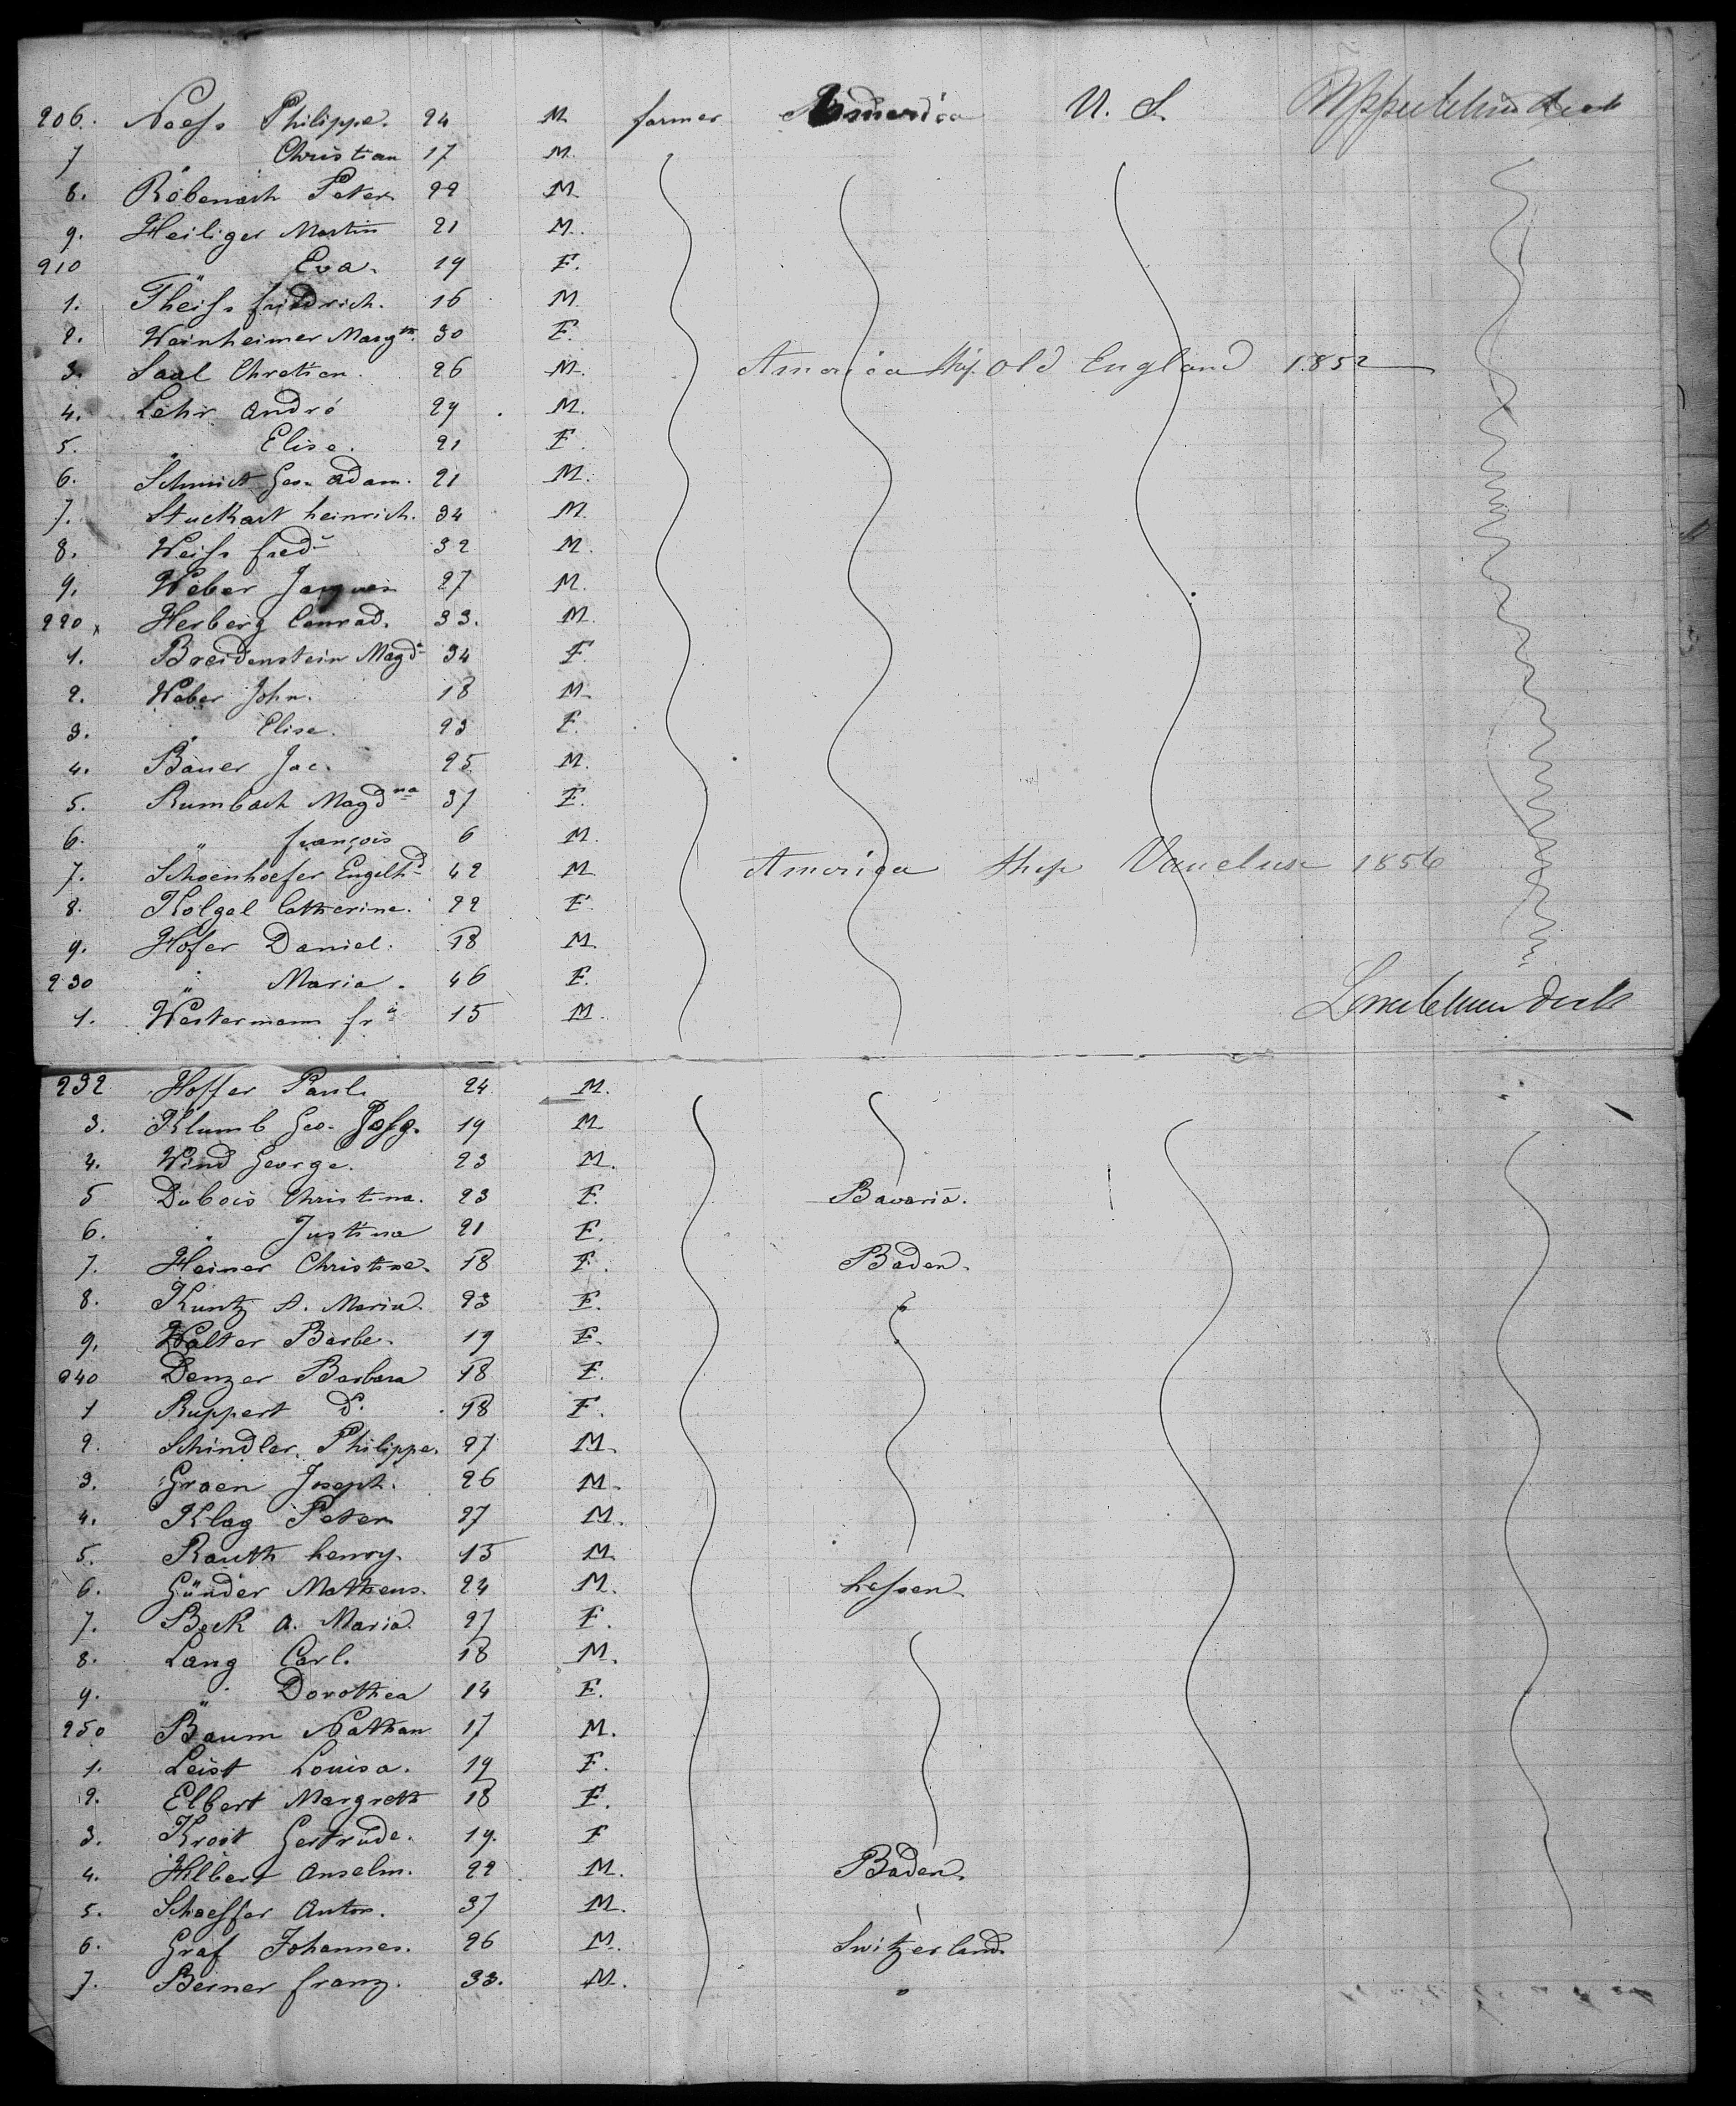 206. Noess Philippe. 24 M farmer America U. S. Upper between deck
7 " Christian 17 M.
8. Röbenach Peter 22 M
9. Heiliger Martin 21 M.
210 " Eva. 19 F.
1. Theiss friedrich. 16 M.
2. Weinheimer Marg 30 F.
3. Saal Chretien. 26 M. America Ship Old England 1852
4. Lehr André 29 M.
5. " Elise. 21 F.
6. Schmidt Geo. Adam. 21 M.
7. Stuckart heinrich. 34 M.
8. Weiss fred 32 M.
9. Weber Jacques 27 M.
220 x Herberg Conrad. 33. M.
1. Breidenstein Magd 34 F.
2. Weber John. 18 M.
3. " Elise. 23 F.
4. Bauer Jac. 25 M.
5. Rumbach Magdna 37 F.
6. " françois 6 M.
7. Schoenhoefer Engelhd 42 M America Ship Vaucluse 1856
8. Kölgel Catherine. 22 F.
9. Hofer Daniel. 18 M.
230 " Maria. 46 F.
1. Westermann fr 15 M. Lower between deck
232 Hoffer Paul. 24 M.
3. Klumb Geo. 19 M
4. Wind George. 23 M.
5 Dubois Christina. 23 F. Bavaria.
6. " Justina 21 F.
7. Heiner Christine. 18 F. Baden.
8. Kuntz A. Maria. 23 F. "
9. Walter Barbe. 19 F.
240 Denzer Barbara 18 F.
1 Ruppert d. 18 F.
2. Schindler Philippe. 27 M.
3. Graen Joseph. 26 M.
4. Klag Peter 27 M.
5. Rauth henry. 15 M.
6. Günder Matheus. 24 M. hessen.
7. Beck A. Maria 27 F.
8. Lang Carl. 18 M.
9. " Dorothea 14 F.
250 Baum Nathan 17 M.
1. Leist Louisa. 19 F.
2. Elbert Margreth 18 F.
3. Krost Gertrude. 19. F
4. Hilbert Anselm. 22 M. Baden.
5. Schaeffer Anton. 37 M.
6. Graf Johannes. 26 M. Switzerland
7. Berner franz. 33. M. "